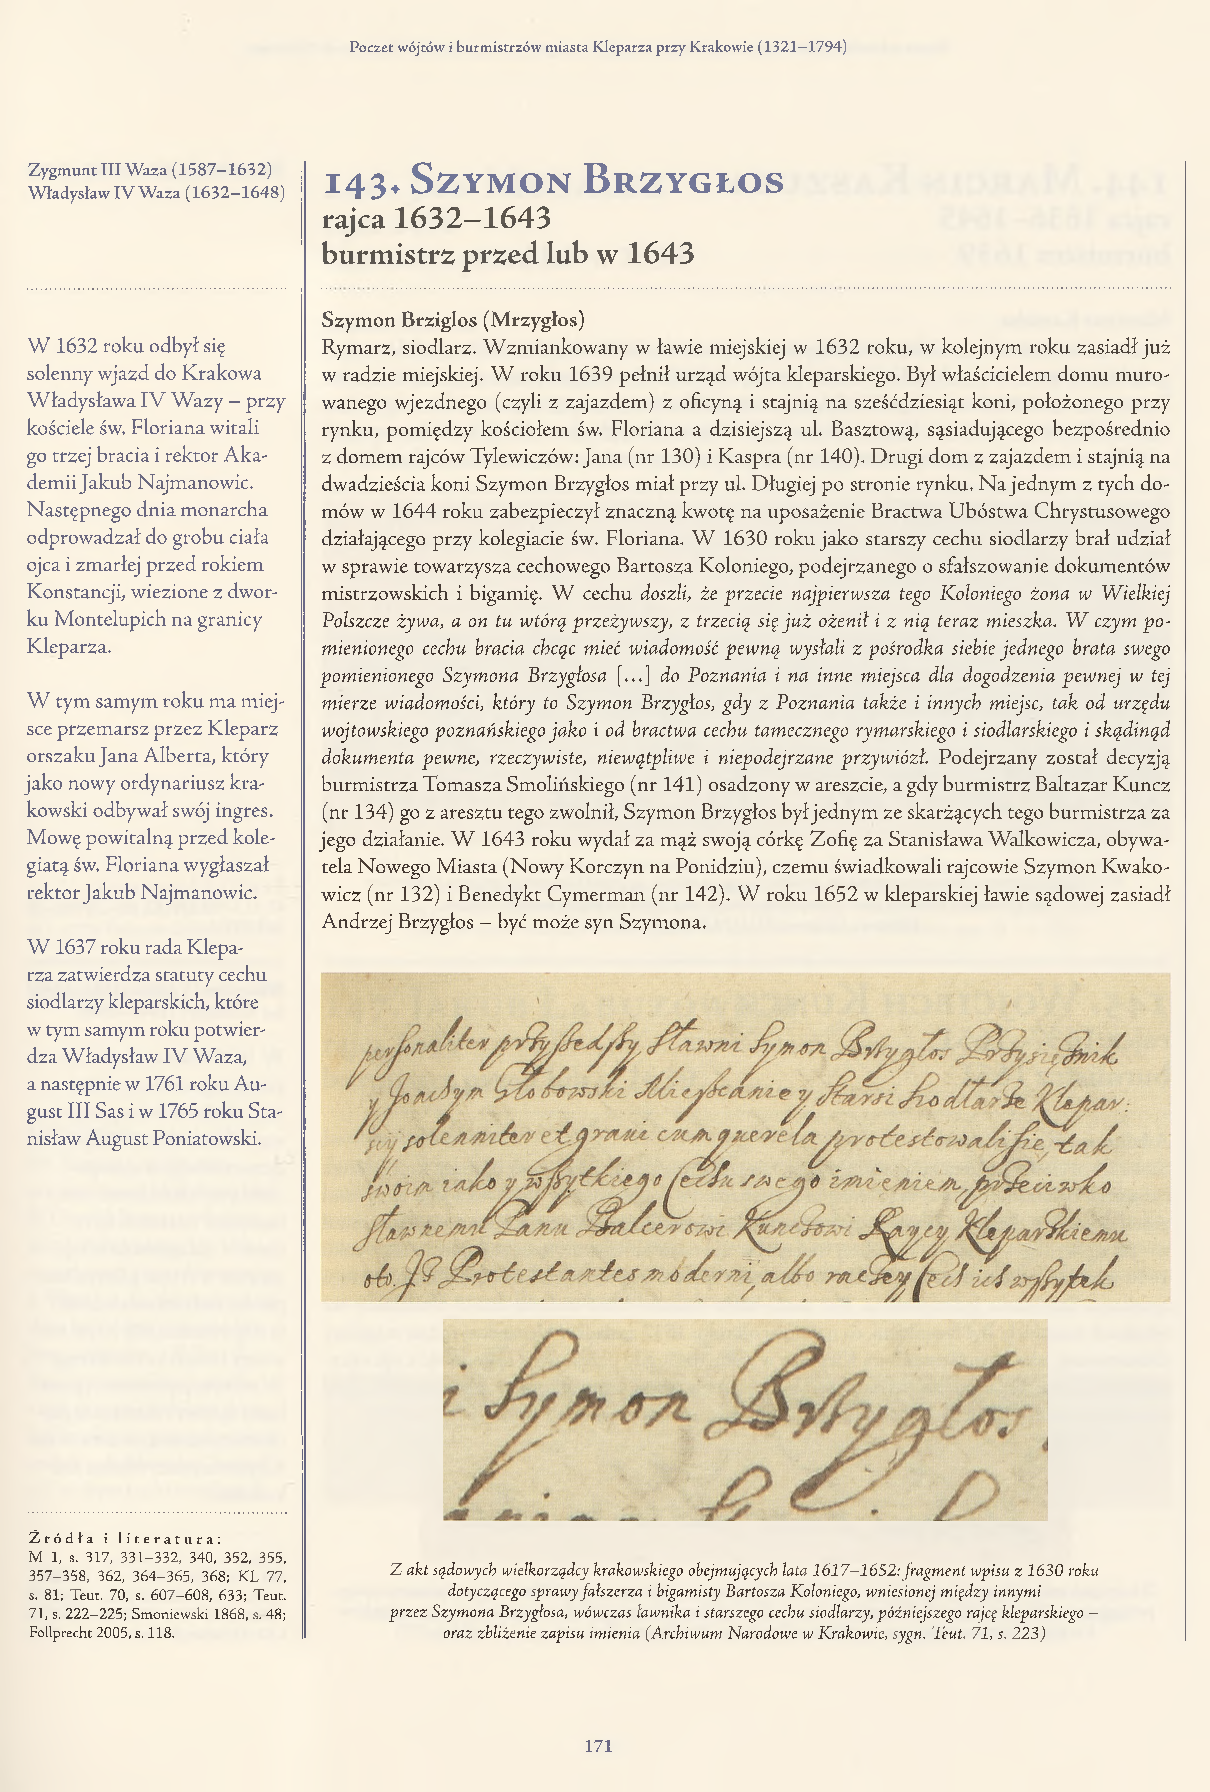 Poczet wójtów i burmistrzów miasta Kleparza przy Krakowie (1321–1794)
Zygmunt III Waza (1587–1632)
Władysław IV Waza (1632–1648)
143. Szymon Brzygłos
rajca 1632–1643
burmistrz przed lub w 1643
W 1632 roku odbył się
solenny wjazd do Krakowa
Władysława IV Wazy – przy
kościele św. Floriana witali
go trzej bracia i rektor Aka-
demii Jakub Najmanowic.
Następnego dnia monarcha
odprowadzał do grobu ciała
ojca i zmarłej przed rokiem
Konstancji, wiezione z dwor-
ku Montelupich na granicy
Kleparza.
W tym samym roku ma miej-
sce przemarsz przez Kleparz
orszaku Jana Alberta, który
jako nowy ordynariusz kra-
kowski odbywał swój ingres.
Mowę powitalną przed kole-
giatą św. Floriana wygłaszał
rektor Jakub Najmanowic.
W 1637 roku rada Klepa-
rza zatwierdza statuty cechu
siodlarzy kleparskich, które
w tym samym roku potwier-
dza Władysław IV Waza,
a następnie w 1761 roku Au-
gust III Sas i w 1765 roku Sta-
nisław August Poniatowski.
Źródła i literatura:
M 1, s. 317, 331–332, 340, 352, 355,
357–358, 362, 364–365, 368; KL 77,
s. 81; Teut. 70, s. 607–608, 633; Teut.
71, s. 222–225; Smoniewski 1868, s. 48;
Follprecht 2005, s. 118.
Szymon Brziglos (Mrzygłos)
Rymarz, siodlarz. Wzmiankowany w ławie miejskiej w 1632 roku, w kolejnym roku zasiadł już
w radzie miejskiej. W roku 1639 pełnił urząd wójta kleparskiego. Był właścicielem domu muro-
wanego wjezdnego (czyli z zajazdem) z oficyną i stajnią na sześćdziesiąt koni, położonego przy
rynku, pomiędzy kościołem św. Floriana a dzisiejszą ul. Basztową, sąsiadującego bezpośrednio
z domem rajców Tylewiczów: Jana (nr 130) i Kaspra (nr 140). Drugi dom z zajazdem i stajnią na
dwadzieścia koni Szymon Brzygłos miał przy ul. Długiej po stronie rynku. Na jednym z tych do-
mów w 1644 roku zabezpieczył znaczną kwotę na uposażenie Bractwa Ubóstwa Chrystusowego
działającego przy kolegiacie św. Floriana. W 1630 roku jako starszy cechu siodlarzy brał udział
w sprawie towarzysza cechowego Bartosza Koloniego, podejrzanego o sfałszowanie dokumentów
mistrzowskich i bigamię. W cechu doszli, że przecie najpierwsza tego Koloniego żona w Wielkiej
Polszcze żywa, a on tu wtórą przeżywszy, z trzecią się już ożenił i z nią teraz mieszka. W czym po-
mienionego cechu bracia chcąc mieć wiadomość pewną wysłali z pośrodka siebie jednego brata swego
pomienionego Szymona Brzygłosa [...] do Poznania i na inne miejsca dla dogodzenia pewnej w tej
mierze wiadomości, który to Szymon Brzygłos, gdy z Poznania także i innych miejsc, tak od urzędu
wojtowskiego poznańskiego jako i od bractwa cechu tamecznego rymarskiego i siodlarskiego i skądinąd
dokumenta pewne, rzeczywiste, niewątpliwe i niepodejrzane przywiózł. Podejrzany został decyzją
burmistrza Tomasza Smolińskiego (nr 141) osadzony w areszcie, a gdy burmistrz Baltazar Kuncz
(nr 134) go z aresztu tego zwolnił, Szymon Brzygłos był jednym ze skarżących tego burmistrza za
jego działanie. W 1643 roku wydał za mąż swoją córkę Zofię za Stanisława Walkowicza, obywa-
tela Nowego Miasta (Nowy Korczyn na Ponidziu), czemu świadkowali rajcowie Szymon Kwako-
wicz (nr 132) i Benedykt Cymerman (nr 142). W roku 1652 w kleparskiej ławie sądowej zasiadł
Andrzej Brzygłos – być może syn Szymona.
personaliter przyszedszy sławni Symon Brzygłos Przysiężnik
y Joachym Głobowski Mieszczanie y starsi siodlarze Klepar:
scy solenniter et graui cum querela protestowali sie, tak
swoim iako y wszytkiego Cechu swego imieniem, przeciwko
sławnemu Panu Balcerowi Kunczowi Raycy Kleparskiemu
oto. Iż Protestantes moderni, albo raczey Cech ich wszytek
i Symon Brzygłos
Z akt sądowych wielkorządcy krakowskiego obejmujących lata 1617–1652: fragment wpisu z 1630 roku
dotyczącego sprawy fałszerza i bigamisty Bartosza Koloniego, wniesionej między innymi
przez Szymona Brzygłosa, wówczas ławnika i starszego cechu siodlarzy, późniejszego rajcę kleparskiego –
oraz zbliżenie zapisu imienia (Archiwum Narodowe w Krakowie, sygn. Teut. 71, s. 223)
171